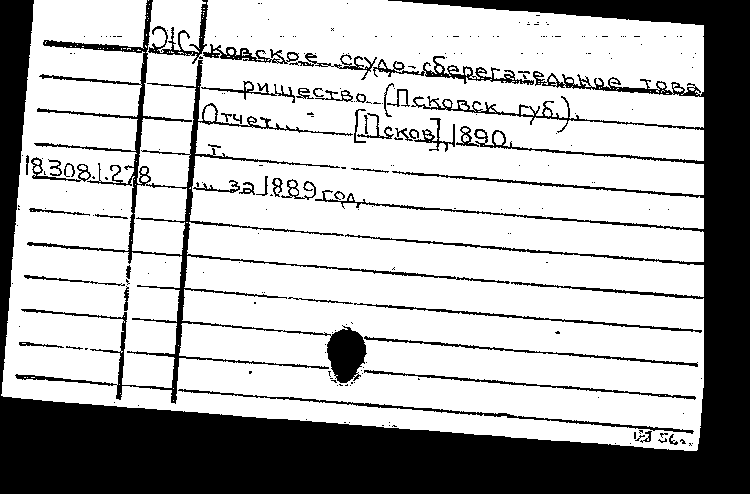 Жуковское ссудо-сберегательное това
рищество (Псковск. губ.).
Отчет... [Псков], 1890.
т.
18.308.1.278. ... за 1889 год.
56г.